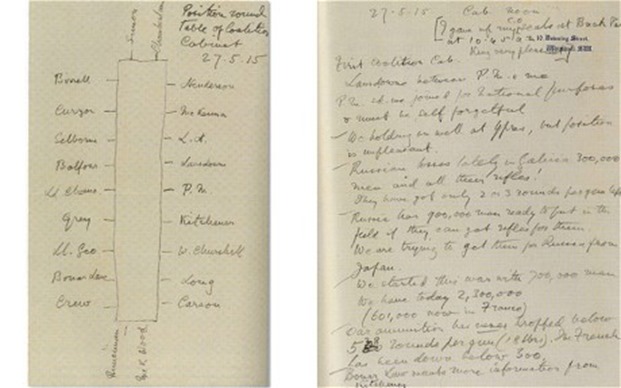 Position round
Table of Coalition
Cabinet
27.5.15
Simon
Chamberlain
Bonell
Curzon
Selborne
Balfour
Ld Chanc
Grey
Ll. Geo
Bonar Law
Crewe
Henderson
McKenna
L. H.
Lansdowne
P. M.
Kitchener
W. Churchill
Long
Carson
Runciman
McK Wood
27-5-15 Cab. noon
I gave up my seals at Buck Pal
at 10.45 a.m.
10, Downing Street,
Whitehall, S.W.
King very pleasant
First coalition Cab.
Lansdowne between P.M. & me
P.M. joined for National purposes
& must be self forgetful
We holding on well at Ypres, but position
is unpleasant.
Russian losses lately in Galicia 300,000
men and all their rifles!
They have got only 2 or 3 rounds per gun left
Russia has 900,000 men ready to put in the
field if they can get rifles for them
We are trying to get them for Russia from
Japan.
We started this war with 700,000 men
We have today 2,300,000
(601,000 now in France)
Our ammunition has never dropped below
rounds per gun (18 lbrs). The French
has been down below 300,
Bonar Law wants more information from
Kitchener